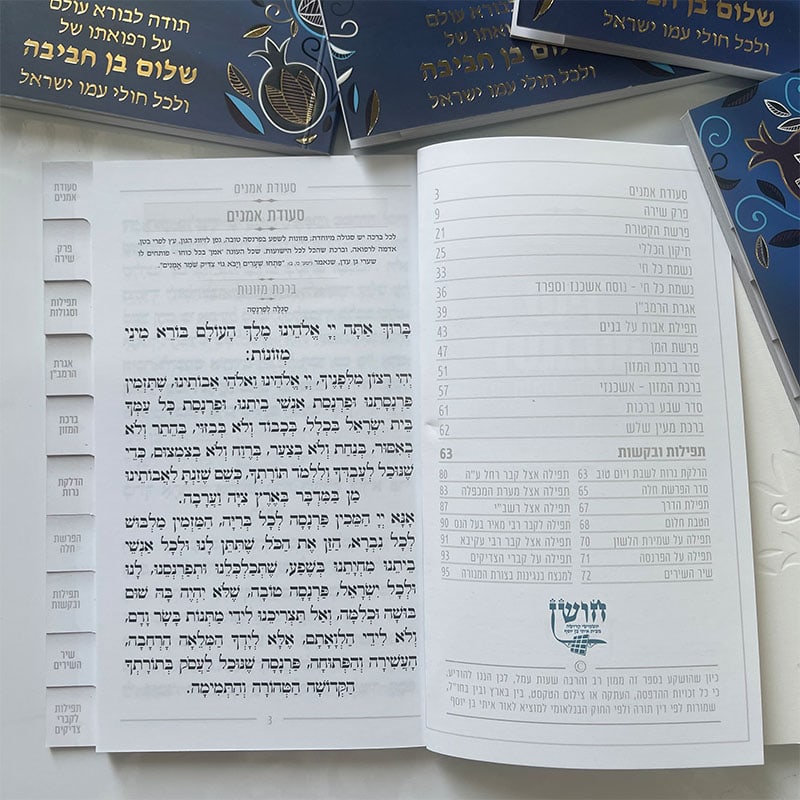 תודה לבורא עולם
על רפואתו של
שלום בן חביבה
ולכל חולי עמו ישראל
תודה לבורא עולם
על רפואתו של
שלום בן חביבה
ולכל חולי עמו ישראל
שלום בן חביבה
ולכל חולי עמו ישראל
סעודת אמנים 3
פרק שירה 9
פרשת הקטורת 21
תיקון הכללי 25
נשמת כל חי 33
נשמת כל חי - נוסח אשכנז וספרד 36
אגרת הרמב"ן 39
תפילת אבות על בנים 43
פרשת המן 47
סדר ברכת המזון 51
ברכת המזון - אשכנזי 57
סדר שבע ברכות 61
ברכת מעין שלש 62
תפילות ובקשות 63
הדלקת נרות לשבת ויום טוב 63
סדר הפרשת חלה 65
תפילת הדרך 67
הטבת חלום 68
תפילה על שמירת הלשון 70
תפילה על הפרנסה 71
שיר השירים 72
תפילה אצל קבר רחל ע"ה 80
תפילה אצל מערת המכפלה 83
תפילה אצל רשב"י 87
תפילה לקבר רבי מאיר בעל הנס 90
תפילה אצל קבר רבי עקיבא 91
תפילה על קברי הצדיקים 93
למנצח בנגינות בצורת המנורה 95
חושן
תשמישי קדושה
מבית איתי בן יוסף
©
כיון שהושקע בספר זה ממון רב והרבה שעות עמל, לכן הננו להודיע,
כי כל זכויות ההדפסה, העתקה או צילום הטקסט, בין בארץ ובין בחו"ל,
שמורות לפי דין תורה ולפי החוק הבנלאומי למוציא לאור איתי בן יוסף
סעודת אמנים
סעודת אמנים
לכל ברכה יש סגולה מיוחדת: מזונות לשפע בפרנסה טובה, גפן לזיווג הגון, עץ לפרי בטן,
אדמה לרפואה, וברכת שהכל לכל הישועות. שכל העונה 'אמן' בכל כוחו - פותחים לו
שערי גן עדן, שנאמר (ישעי' כו, ב) "פִּתְחוּ שְׁעָרִים וְיָבֹא גוֹי צַדִּיק שֹׁמֵר אֱמֻנִים".
ברכת מזונות
סְגֻלָּה לְפַרְנָסָה
בָּרוּךְ אַתָּה יְיָ אֱלֹהֵינוּ מֶלֶךְ הָעוֹלָם בּוֹרֵא מִינֵי
מְזוֹנוֹת:
וִהִי רָצוֹן מִלְּפָנֶיךָ, יְיָ אֱלֹהֵינוּ וֵאלֹהֵי אֲבוֹתֵינוּ, שֶׁתַּזְמִין
פַּרְנָסָתֵנוּ וּפַרְנָסַת אַנְשֵׁי בֵיתֵנוּ, וּפַרְנָסַת כָּל עַמְּךָ
בֵּית יִשְׂרָאֵל בִּכְלָל, בְּכָבוֹד וְלֹא בְּבִזּוּי, בְּהֶתֵּר וְלֹא
בְּאִסּוּר, בְּנַחַת וְלֹא בְּצַעַר, בְּרֶוַח וְלֹא בְּצִמְצוּם, כְּדֵי
שֶׁנּוּכַל לְעָבְדְּךָ וְלִלְמֹד תּוֹרָתְךָ, כְּשֵׁם שֶׁזַּנְתָּ לַאֲבוֹתֵינוּ
מָן בַּמִּדְבָּר בְּאֶרֶץ צִיָּה וַעֲרָבָה.
אָנָּא יְיָ הַמֵּכִין פַּרְנָסָה לְכָל בְּרִיָּה, הַמַּזְמִין מַלְבּוּשׁ
לְכָל נִבְרָא, הַזָּן אֶת הַכֹּל, שֶׁתִּתֵּן לָנוּ וּלְכָל אַנְשֵׁי
בֵיתֵנוּ מִחְיָתֵנוּ בְּשֶׁפַע, שֶׁתְּכַלְכְּלֵנוּ וּתְפַרְנְסֵנוּ, לָנוּ
וּלְכָל יִשְׂרָאֵל, פַּרְנָסָה טוֹבָה, שֶׁלֹּא יִהְיֶה בָּהּ שׁוּם
בּוּשָׁה וּכְלִמָּה, וְאַל תַּצְרִיכֵנוּ לִידֵי מַתְּנוֹת בָּשָׂר וָדָם,
וְלֹא לִידֵי הַלְוָאָתָם, אֶלָּא לְיָדְךָ הַמְּלֵאָה הָרְחָבָה,
הָעֲשִׁירָה וְהַפְּתוּחָה, פַּרְנָסָה שֶׁנּוּכַל לַעֲסֹק בְּתוֹרָתְךָ
הַקְּדוֹשָׁה הַטְּהוֹרָה וְהַתְּמִימָה.
3
סעודת
אמנים
פרק
שירה
תפילות
וסגולות
אגרת
הרמב"ן
ברכת
המזון
הדלקת
נרות
הפרשת
חלה
תפילות
ובקשות
שיר
השירים
תפילות
לקברי
צדיקים